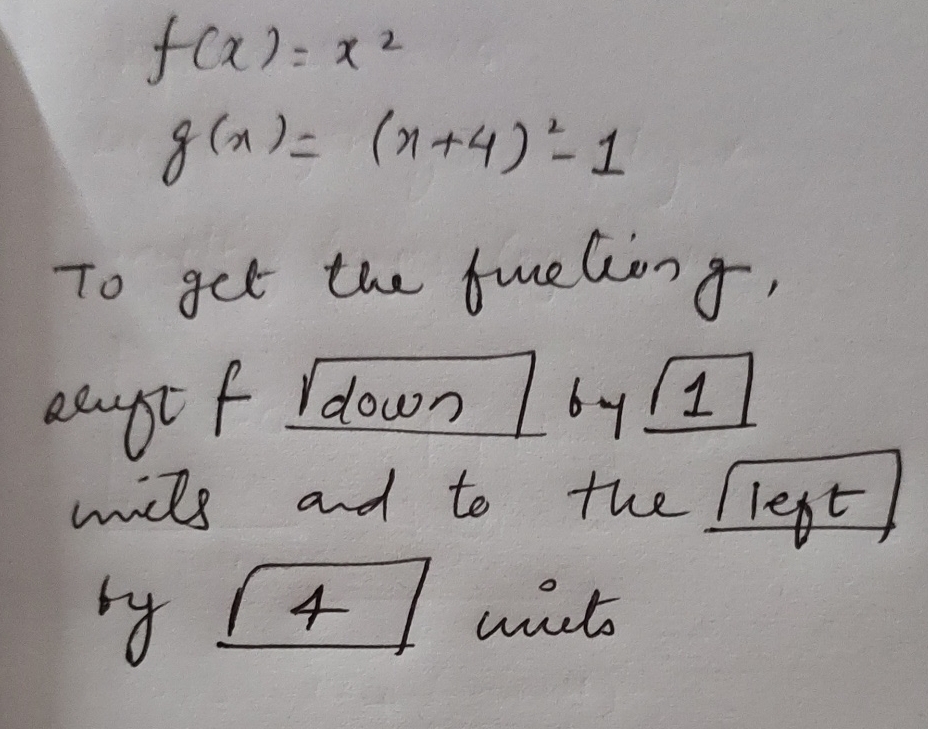 f(x) = x²
g(x) = (x+4)² - 1
To get the function g,
shift f down by 1
units and to the left
by 4 units